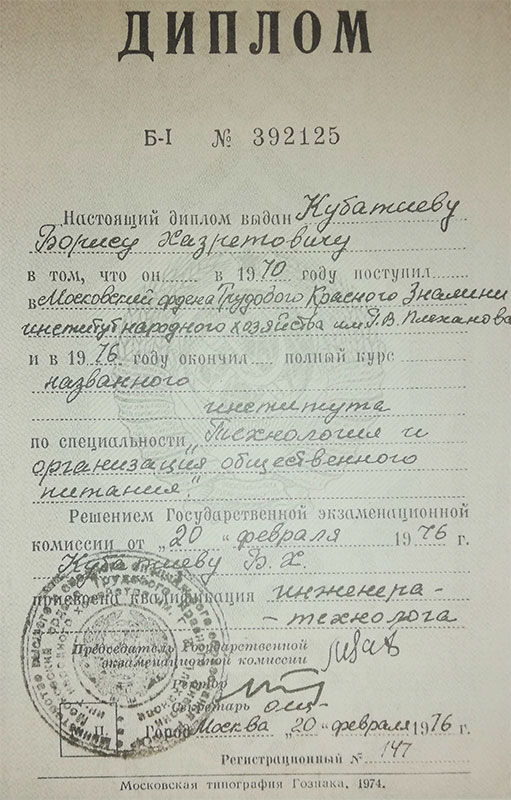 ДИПЛОМ
Б-I № 392125
Настоящий диплом выдан Кубатиеву
Борису Хазретовичу
в том, что он в 1970 году поступил
в Московский ордена Трудового Красного Знамени
институт народного хозяйства им. Г. В. Плеханова
и в 1976 году окончил полный курс
названного
института
по специальности „Технология и
организация общественного
питания."
Решением Государственной экзаменационной
комиссии от „20" февраля 1976 г.
Кубатиеву Б. Х.
присвоена квалификация инженера-
-технолога
Председатель Государственной
экзаменационной комиссии
Ректор
Секретарь
М. П. Город Москва „20" февраля 1976 г.
Регистрационный № 147
Московская типография Гознака. 1974.